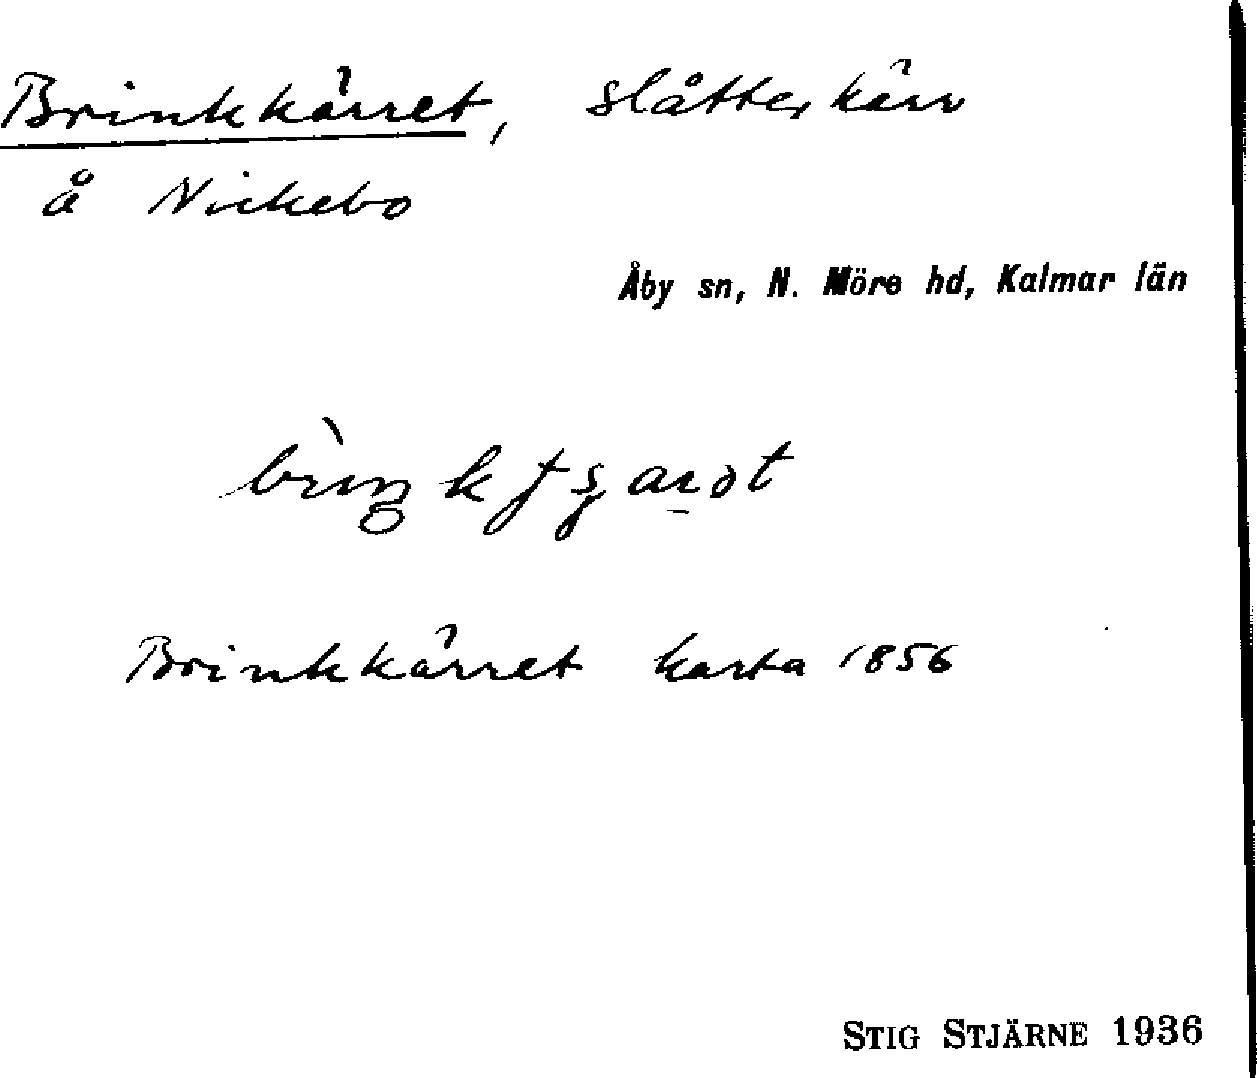 Brinkkärret, slåtterkärr
å Nickebo
Åby sn, N. Möre hd, Kalmar län
Brinkkärret karta 1856
STIG STJÄRNE 1936